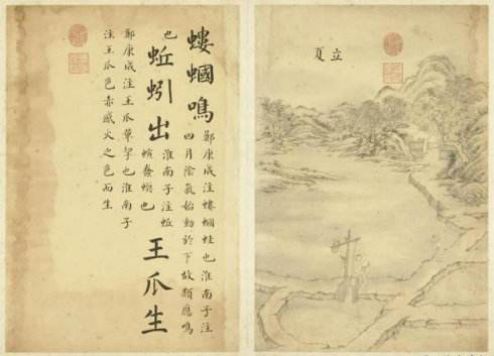 立夏
螻蟈鳴
鄭康成注螻蟈蛙也淮南子注
四月陰氣始動於下故類應鳴
也
蚯蚓出
淮南子注蚯
螾蠢蝡也
王瓜生
鄭康成注王瓜萆挈也淮南子
注王瓜色赤感火之色而生